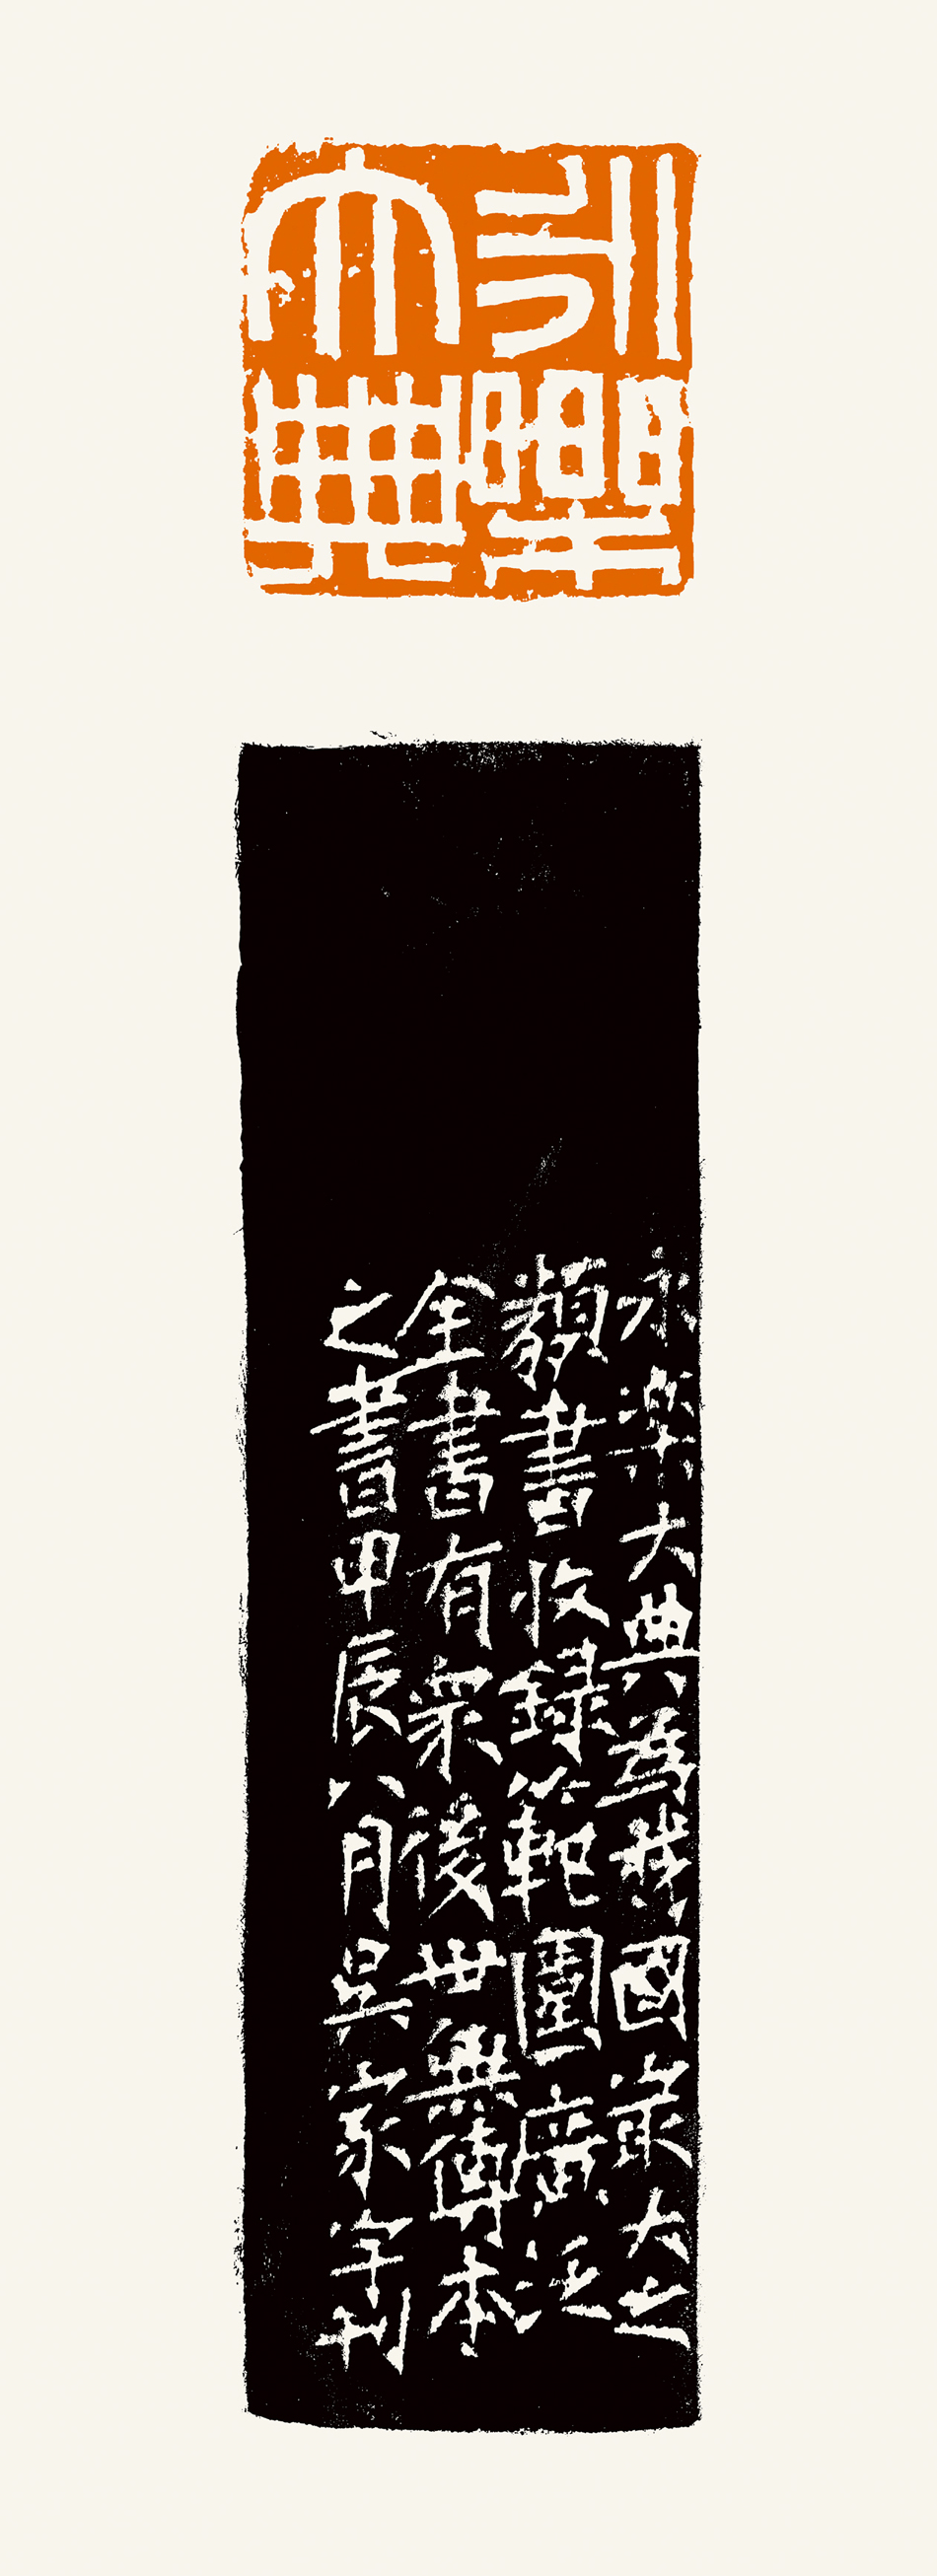 永樂
大典
永樂大典為我國最大之
類書收録範圍廣泛
全書有眾後世無傳本
之書甲辰八月吳家宇刊